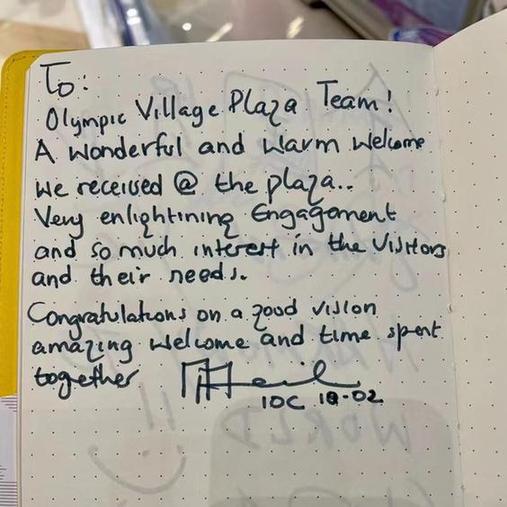 To:
Olympic Village Plaza Team!
A wonderful and warm welcome
we received @ the plaza..
Very enlightining Engagement
and so much interest in the visitors
and their needs.
Congratulations on a good vision
amazing welcome and time spent
together
IOC 18-02
WORLD